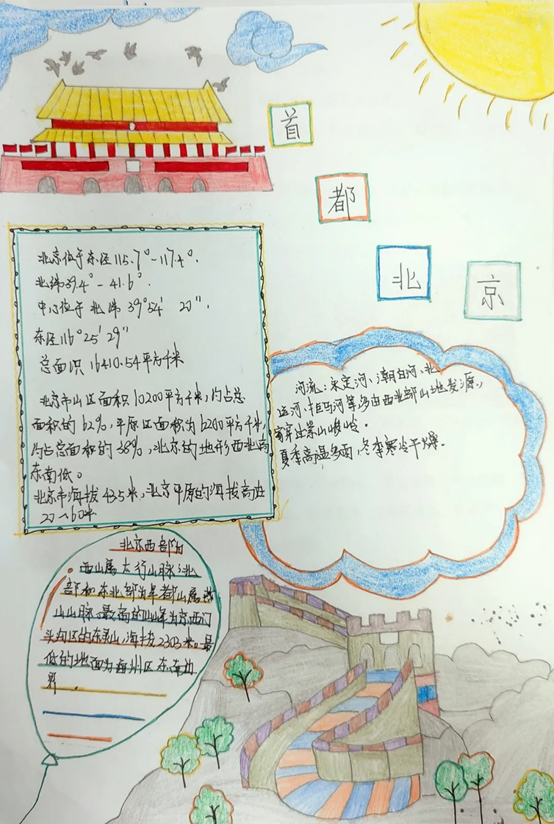 首
都
北
京
北京位于东经115.7°-117.4°.
北纬39.4°-41.6°.
中心位于北纬39°54′20″.
东经116°25′29″
总面积16410.54平方千米
北京市山区面积10200平方千米,约占总
面积的62%,平原区面积为6200平方千米,
约占总面积的38%,北京的地形西北高
东南低。
北京市海拔43.5米,北京平原的海拔高在
20~60米
河流:永定河、潮白河、北
运河、拒马河等多由西北部山地发源,
穿过崇山峻岭。
夏季高温多雨,冬季寒冷干燥。
北京西部为
西山属太行山脉;北
部和东北部为军都山属燕
山山脉最高的山峰为京西门
头沟区的东灵山,海拔2303米。最
低的地面为通州区东南边
界